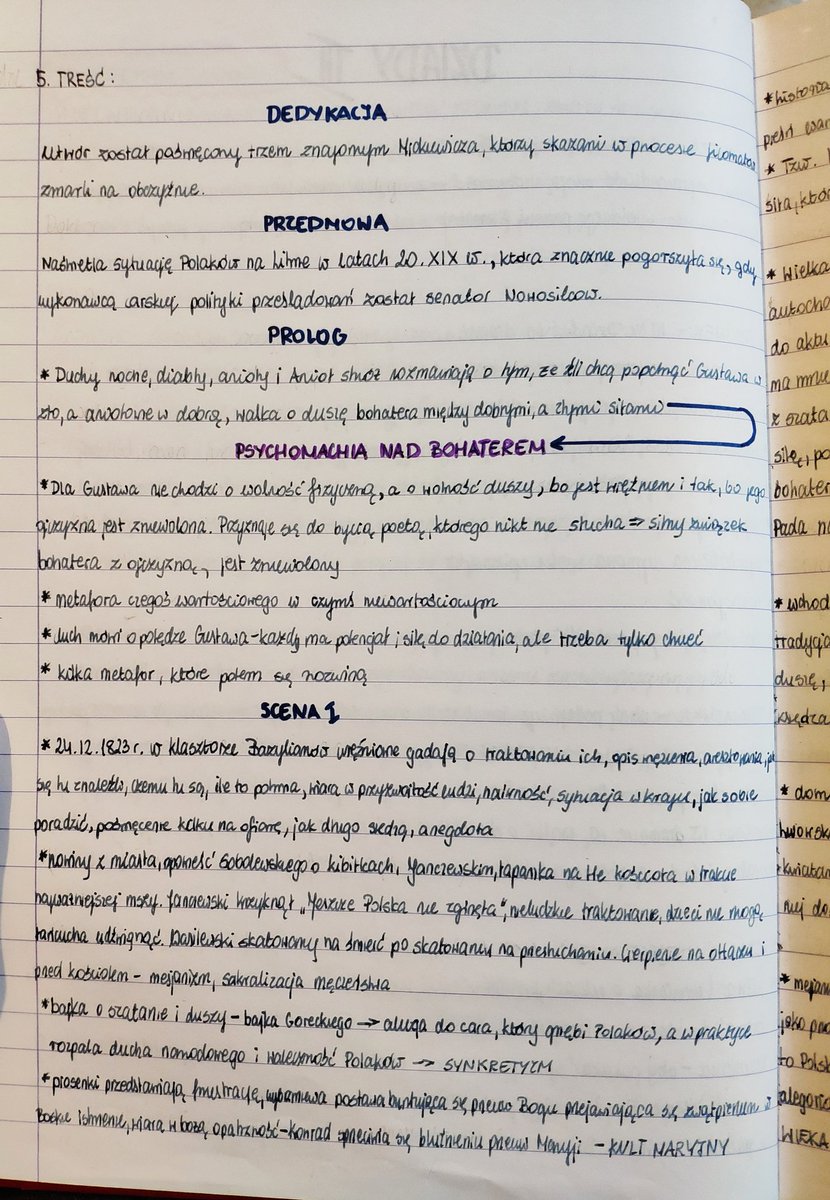 5. TREŚĆ:
DEDYKACJA
Utwór został poświęcony trzem znajomym Mickiewicza, którzy skazani w procesie filomatów
zmarli na obczyźnie.
PRZEDMOWA
Naświetla sytuację Polaków na Litwie w latach 20. XIX w., która znacznie pogorszyła się, gdy
wykonawcą carskiej polityki prześladowań został senator Nowosilcow.
PROLOG
* Duchy nocne, diabły, anioły i Anioł stróż rozmawiają o tym, że źli chcą popchnąć Gustawa w
zło, a aniołowie w dobro, walka o duszę bohatera między dobrymi, a złymi siłami
PSYCHOMACHIA NAD BOHATEREM
* Dla Gustawa nie chodzi o wolność fizyczną, a o wolność duszy, bo jest więźniem i tak, bo jego
ojczyzna jest zniewolona. Przyznaje się do bycia poetą, którego nikt nie słucha => silny związek
bohatera z ojczyzną, jest zniewolony
* metafora czegoś wartościowego w czymś niewartościowym
* duch mówi o potędze Gustawa - każdy ma potencjał i siłę do działania, ale trzeba tylko chcieć
* kilka metafor, które potem się rozwiną
SCENA I
* 24.12.1823 r. w klasztorze Bazylianów więźniowie gadają o traktowaniu ich, opis więzienia, aresztowania, jak
się tu znaleźli, czemu tu są, ile to potrwa, wiara w przyzwoitość ludzi, naiwność, sytuacja w kraju, jak sobie
poradzić, poświęcenie kilku na ofiarę, jak długo siedzą, anegdota
* nowiny z miasta, opowieść Sobolewskiego o kibitkach, Janczewskim, łapanka na tle kościoła w trakcie
najważniejszej mszy. Janczewski krzyknął „Jeszcze Polska nie zginęła", nieludzkie traktowanie, dzieci nie mogą
łańcucha udźwignąć. Wasilewski skatowany na śmierć po skatowaniu na przesłuchaniu. Cierpienie na ołtarzu i
przed kościołem - mesjanizm, sakralizacja męczeństwa
* bajka o szatanie i duszy - bajka Goreckiego → aluzja do cara, który gnębi Polaków, a w praktyce
rozpala ducha narodowego i waleczność Polaków → SYNKRETYZM
* piosenki przedstawiają frustrację, postawa buntująca się przeciw Bogu przejawiająca się zwątpieniem w
Boskie istnienie, wiara w bożą opatrzność - Konrad sprzeciwia się bluźnieniu przeciw Maryji - KULT MARYJNY
* historia
pieśń
* Tzw.
siła, któr
* Wielka
do aktu
z szata
siłę, po
bohater
Pada n
* wchod
tradycja
duszę,
księdza
* dom
* mesjan
to Polsk
alegoria
WIELKA